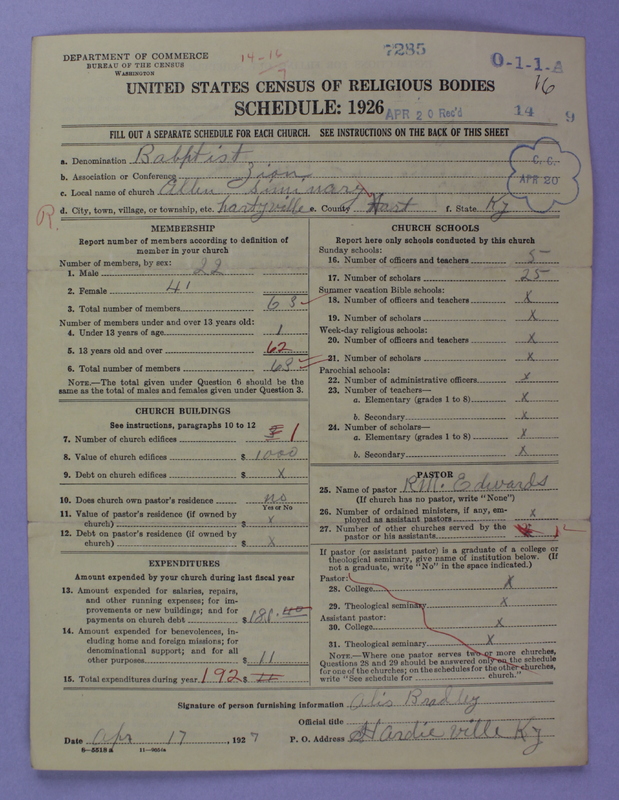 DEPARTMENT OF COMMERCE
BUREAU OF THE CENSUS
WASHINGTON
14-16
7
7285
O-1-1-A
16
UNITED STATES CENSUS OF RELIGIOUS BODIES
SCHEDULE: 1926
APR 20 Rec'd
14 9
FILL OUT A SEPARATE SCHEDULE FOR EACH CHURCH. SEE INSTRUCTIONS ON THE BACK OF THIS SHEET
C. C.
APR 20
a. Denomination Babptist
b. Association or Conference Zion
c. Local name of church Allen Siminary
d. City, town, village, or township, etc. hardyville e. County Hart f. State Ky
R.
MEMBERSHIP
Report number of members according to definition of
member in your church
Number of members, by sex:
1. Male 22
2. Female 41
3. Total number of members 63
Number of members under and over 13 years old:
4. Under 13 years of age 1
5. 13 years old and over 62
6. Total number of members 63
NOTE.—The total given under Question 6 should be the
same as the total of males and females given under Question 3.
CHURCH BUILDINGS
See instructions, paragraphs 10 to 12
7. Number of church edifices 1
8. Value of church edifices $ 1000
9. Debt on church edifices $ X
10. Does church own pastor's residence no
Yes or No
11. Value of pastor's residence (if owned by
church) $ X
12. Debt on pastor's residence (if owned by
church) $ X
EXPENDITURES
Amount expended by your church during last fiscal year
13. Amount expended for salaries, repairs,
and other running expenses; for im-
provements or new buildings; and for
payments on church debt $ 181.40
14. Amount expended for benevolences, in-
cluding home and foreign missions; for
denominational support; and for all
other purposes $ 11
15. Total expenditures during year 192 $ 11
CHURCH SCHOOLS
Report here only schools conducted by this church
Sunday schools:
16. Number of officers and teachers 5
17. Number of scholars 25
Summer vacation Bible schools:
18. Number of officers and teachers X
19. Number of scholars X
Week-day religious schools:
20. Number of officers and teachers X
21. Number of scholars X
Parochial schools:
22. Number of administrative officers X
23. Number of teachers—
a. Elementary (grades 1 to 8) X
b. Secondary X
24. Number of scholars—
a. Elementary (grades 1 to 8) X
b. Secondary X
PASTOR
25. Name of pastor R.M. Edwards
(If church has no pastor, write "None")
26. Number of ordained ministers, if any, em-
ployed as assistant pastors X
27. Number of other churches served by the
pastor or his assistants
If pastor (or assistant pastor) is a graduate of a college or
theological seminary, give name of institution below. (If
not a graduate, write "No" in the space indicated.)
Pastor:
28. College X
29. Theological seminary X
Assistant pastor:
30. College X
31. Theological seminary X
NOTE.—Where one pastor serves two or more churches,
Questions 28 and 29 should be answered only on the schedule
for one of the churches; on the schedules for the other churches,
write "See schedule for church."
Signature of person furnishing information Alis Bradley
Official title
Date Apr 17, 1927 P. O. Address Hardieville Ky
8—5518a 11—9054a